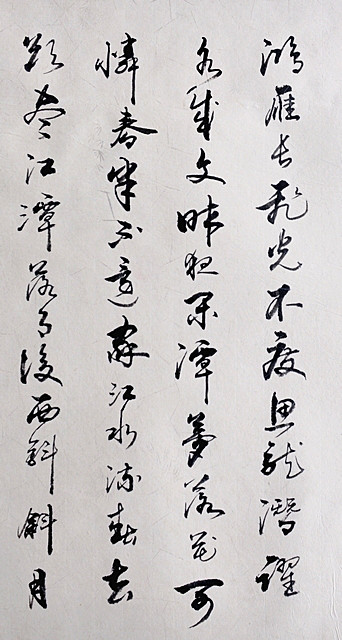 鴻雁長飛光不度魚龍潛躍
水成文昨夜閑潭夢落花可
憐春半不還家江水流春去
欲盡江潭落月復西斜斜月